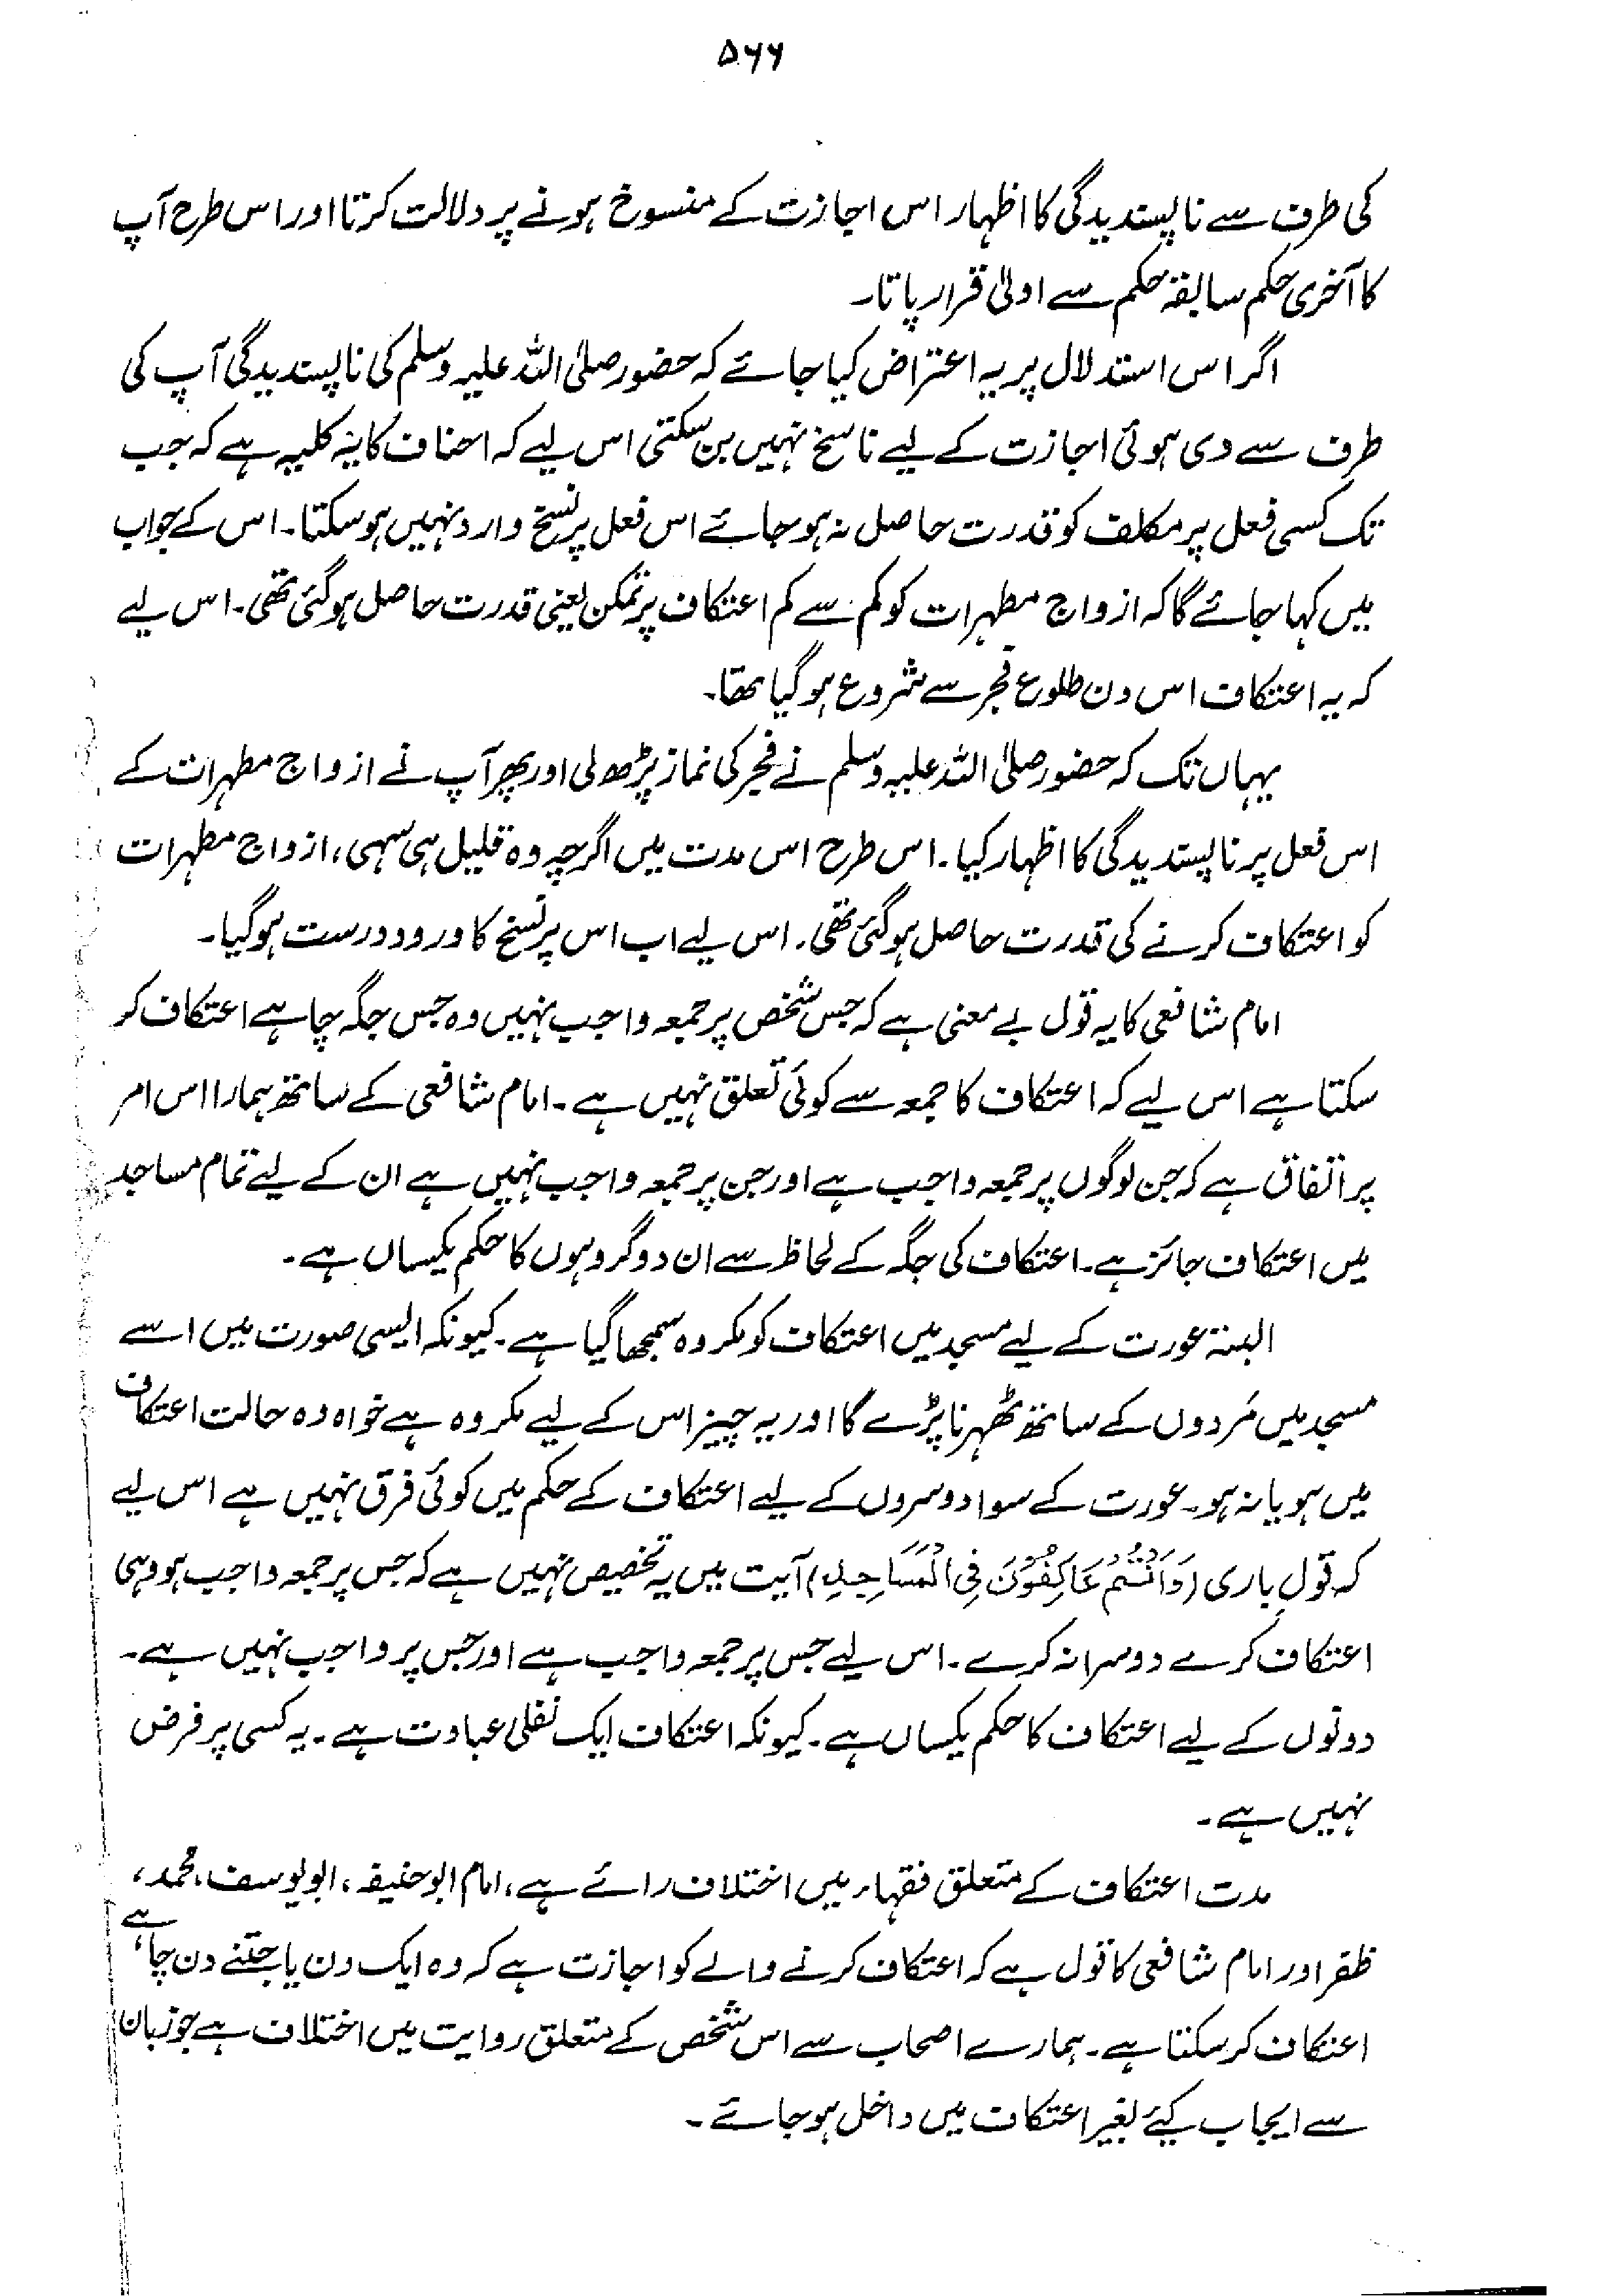 ۵۶۶
کی طرف سے ناپسندیدگی کا اظہار اس اجازت کے منسوخ ہونے پر دلالت کرتا اور اس طرح آپ
کا آخری حکم سابقہ حکم سے اولیٰ قرار پاتا۔
اگر اس استدلال پر یہ اعتراض کیا جائے کہ حضور صلی اللہ علیہ وسلم کی ناپسندیدگی آپ کی
طرف سے دی ہوئی اجازت کے لیے ناسخ نہیں بن سکتی اس لیے کہ احناف کا یہ کلیہ ہے کہ جب
تک کسی فعل پر مکلف کو قدرت حاصل نہ ہو جائے اس فعل پر نسخ وارد نہیں ہو سکتا۔ اس کے جواب
میں کہا جائے گا کہ ازواج مطہرات کو کم سے کم اعتکاف پر تمکن یعنی قدرت حاصل ہو گئی تھی۔ اس لیے
کہ یہ اعتکاف اس دن طلوع فجر سے شروع ہو گیا تھا۔
یہاں تک کہ حضور صلی اللہ علیہ وسلم نے فجر کی نماز پڑھ لی اور پھر آپ نے ازواج مطہرات کے
اس فعل پر ناپسندیدگی کا اظہار کیا۔ اس طرح اس مدت میں اگرچہ وہ قلیل ہی سہی، ازواج مطہرات
کو اعتکاف کرنے کی قدرت حاصل ہو گئی تھی۔ اس لیے اب اس پر نسخ کا ورود درست ہو گیا۔
امام شافعی کا یہ قول بے معنی ہے کہ جس شخص پر جمعہ واجب نہیں وہ جس جگہ چاہے اعتکاف کر
سکتا ہے اس لیے کہ اعتکاف کا جمعہ سے کوئی تعلق نہیں ہے۔ امام شافعی کے ساتھ ہمارا اس امر
پر اتفاق ہے کہ جن لوگوں پر جمعہ واجب ہے اور جن پر جمعہ واجب نہیں ہے ان کے لیے تمام مساجد
میں اعتکاف جائز ہے۔ اعتکاف کی جگہ کے لحاظ سے ان دو گروہوں کا حکم یکساں ہے۔
البتہ عورت کے لیے مسجد میں اعتکاف کو مکروہ سمجھا گیا ہے۔ کیونکہ ایسی صورت میں اسے
مسجد میں مَردوں کے ساتھ ٹھہرنا پڑے گا اور یہ چیز اس کے لیے مکروہ ہے خواہ وہ حالت اعتکاف
میں ہو یا نہ ہو۔ عورت کے سوا دوسروں کے لیے اعتکاف کے حکم میں کوئی فرق نہیں ہے اس لیے
کہ قولِ باری (وَاَنْتُمْ عَاکِفُوْنَ فِی الْمَسَاجِدِ) آیت میں یہ تخصیص نہیں ہے کہ جس پر جمعہ واجب ہو وہی
اعتکاف کرے دوسرا نہ کرے۔ اس لیے جس پر جمعہ واجب ہے اور جس پر واجب نہیں ہے۔
دونوں کے لیے اعتکاف کا حکم یکساں ہے۔ کیونکہ اعتکاف ایک نفلی عبادت ہے۔ یہ کسی پر فرض
نہیں ہے۔
مدت اعتکاف کے متعلق فقہاء میں اختلاف رائے ہے، امام ابوحنیفہ، ابویوسف، محمد،
ظفر اور امام شافعی کا قول ہے کہ اعتکاف کرنے والے کو اجازت ہے کہ وہ ایک دن یا جتنے دن چاہے
اعتکاف کر سکتا ہے۔ ہمارے اصحاب سے اس شخص کے متعلق روایت میں اختلاف ہے جو زبان
سے ایجاب کیئے بغیر اعتکاف میں داخل ہو جائے۔